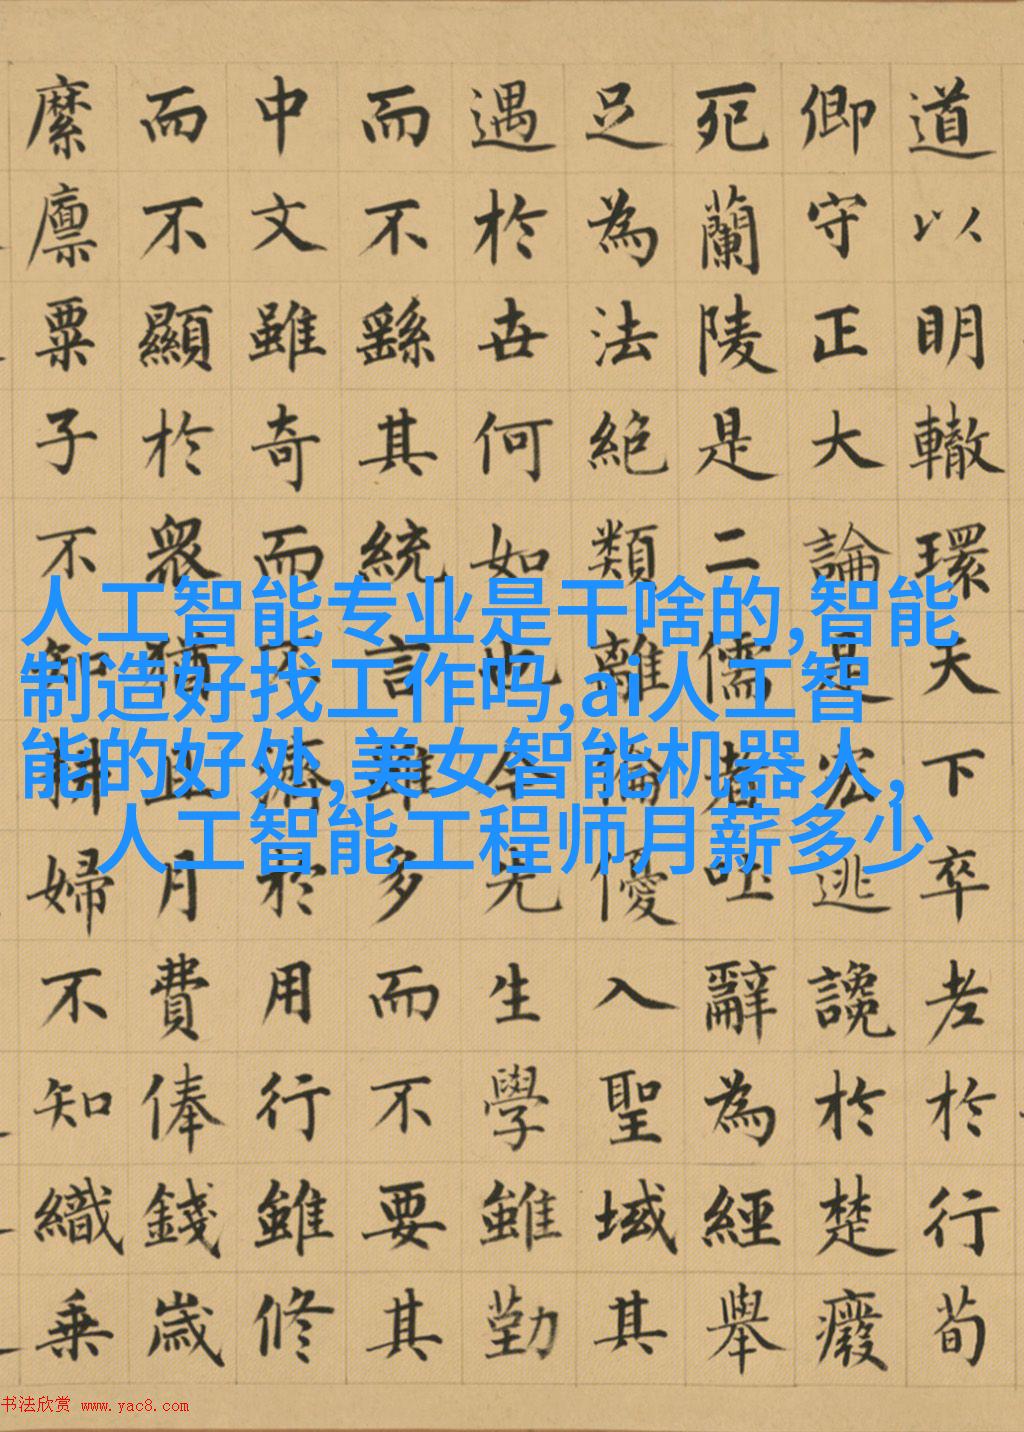 道以明轍環天下卒老於行荀
卿守正大論是宏逃讒於楚癈
死蘭陵是二儒者吐辭為經舉
足為法絕類離倫優入聖域其
遇於世何如也今先生學雖勤
而不繇其統言雖多而不要其
中文雖奇而不濟於用行雖修
而不顯於衆猶且月費俸錢歲
縻廩粟子不知耕婦不知織乘
人工智能专业是干啥的,智能
制造好找工作吗,ai人工智
能的好处,美女智能机器人,
人工智能工程师月薪多少
书法欣赏 www.yac8.com